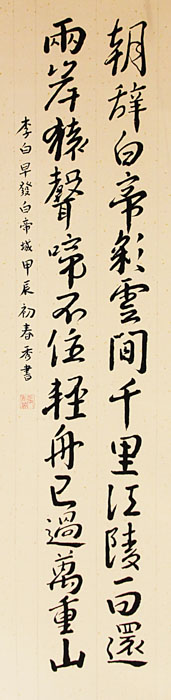 朝辭白帝彩雲間千里江陵一日還
兩岸猿聲啼不住輕舟已過萬重山
李白早發白帝城甲辰初春秀書